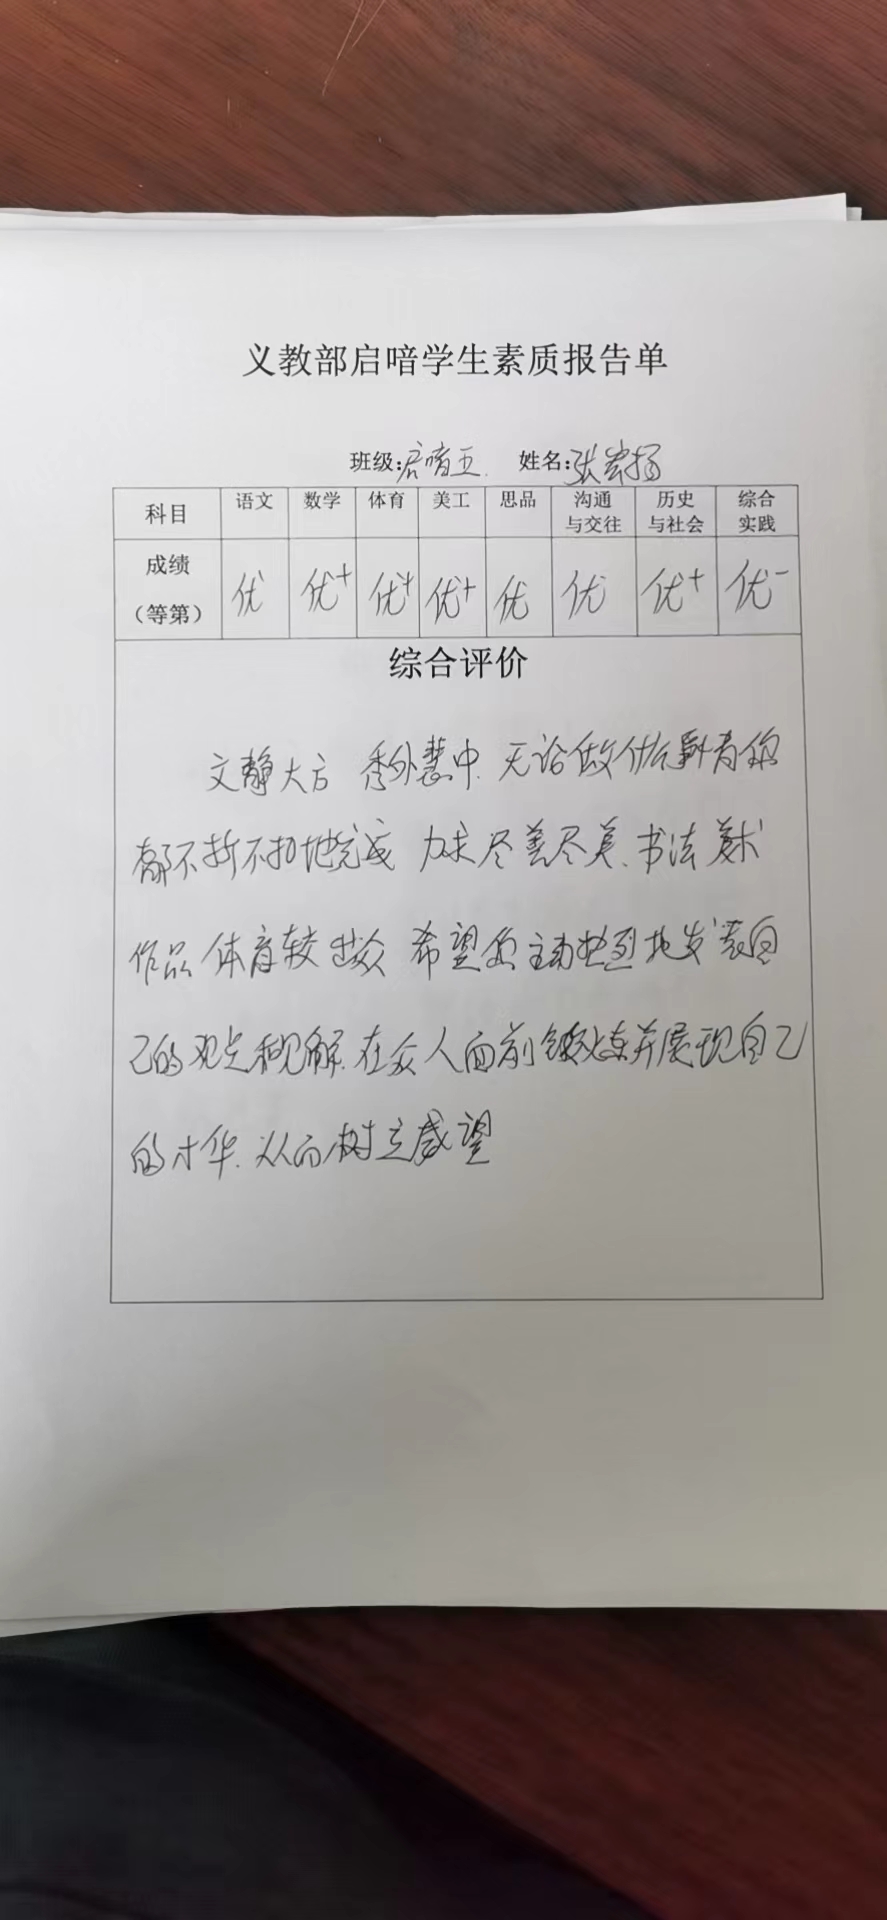 义教部启喑学生素质报告单
班级:启喑五 姓名:张宏扬
科目 语文 数学 体育 美工 思品 沟通与交往 历史与社会 综合实践
成绩（等第） 优 优+ 优+ 优+ 优 优 优+ 优-
综合评价
文静大方 秀外慧中 无论做什么事情你
都不折不扣地完成 力求尽善尽美、书法美术
作品 体育较出众 希望你主动热烈地发表自
己的观点和见解、在众人面前锻炼并展现自己
的才华、从而树立威望